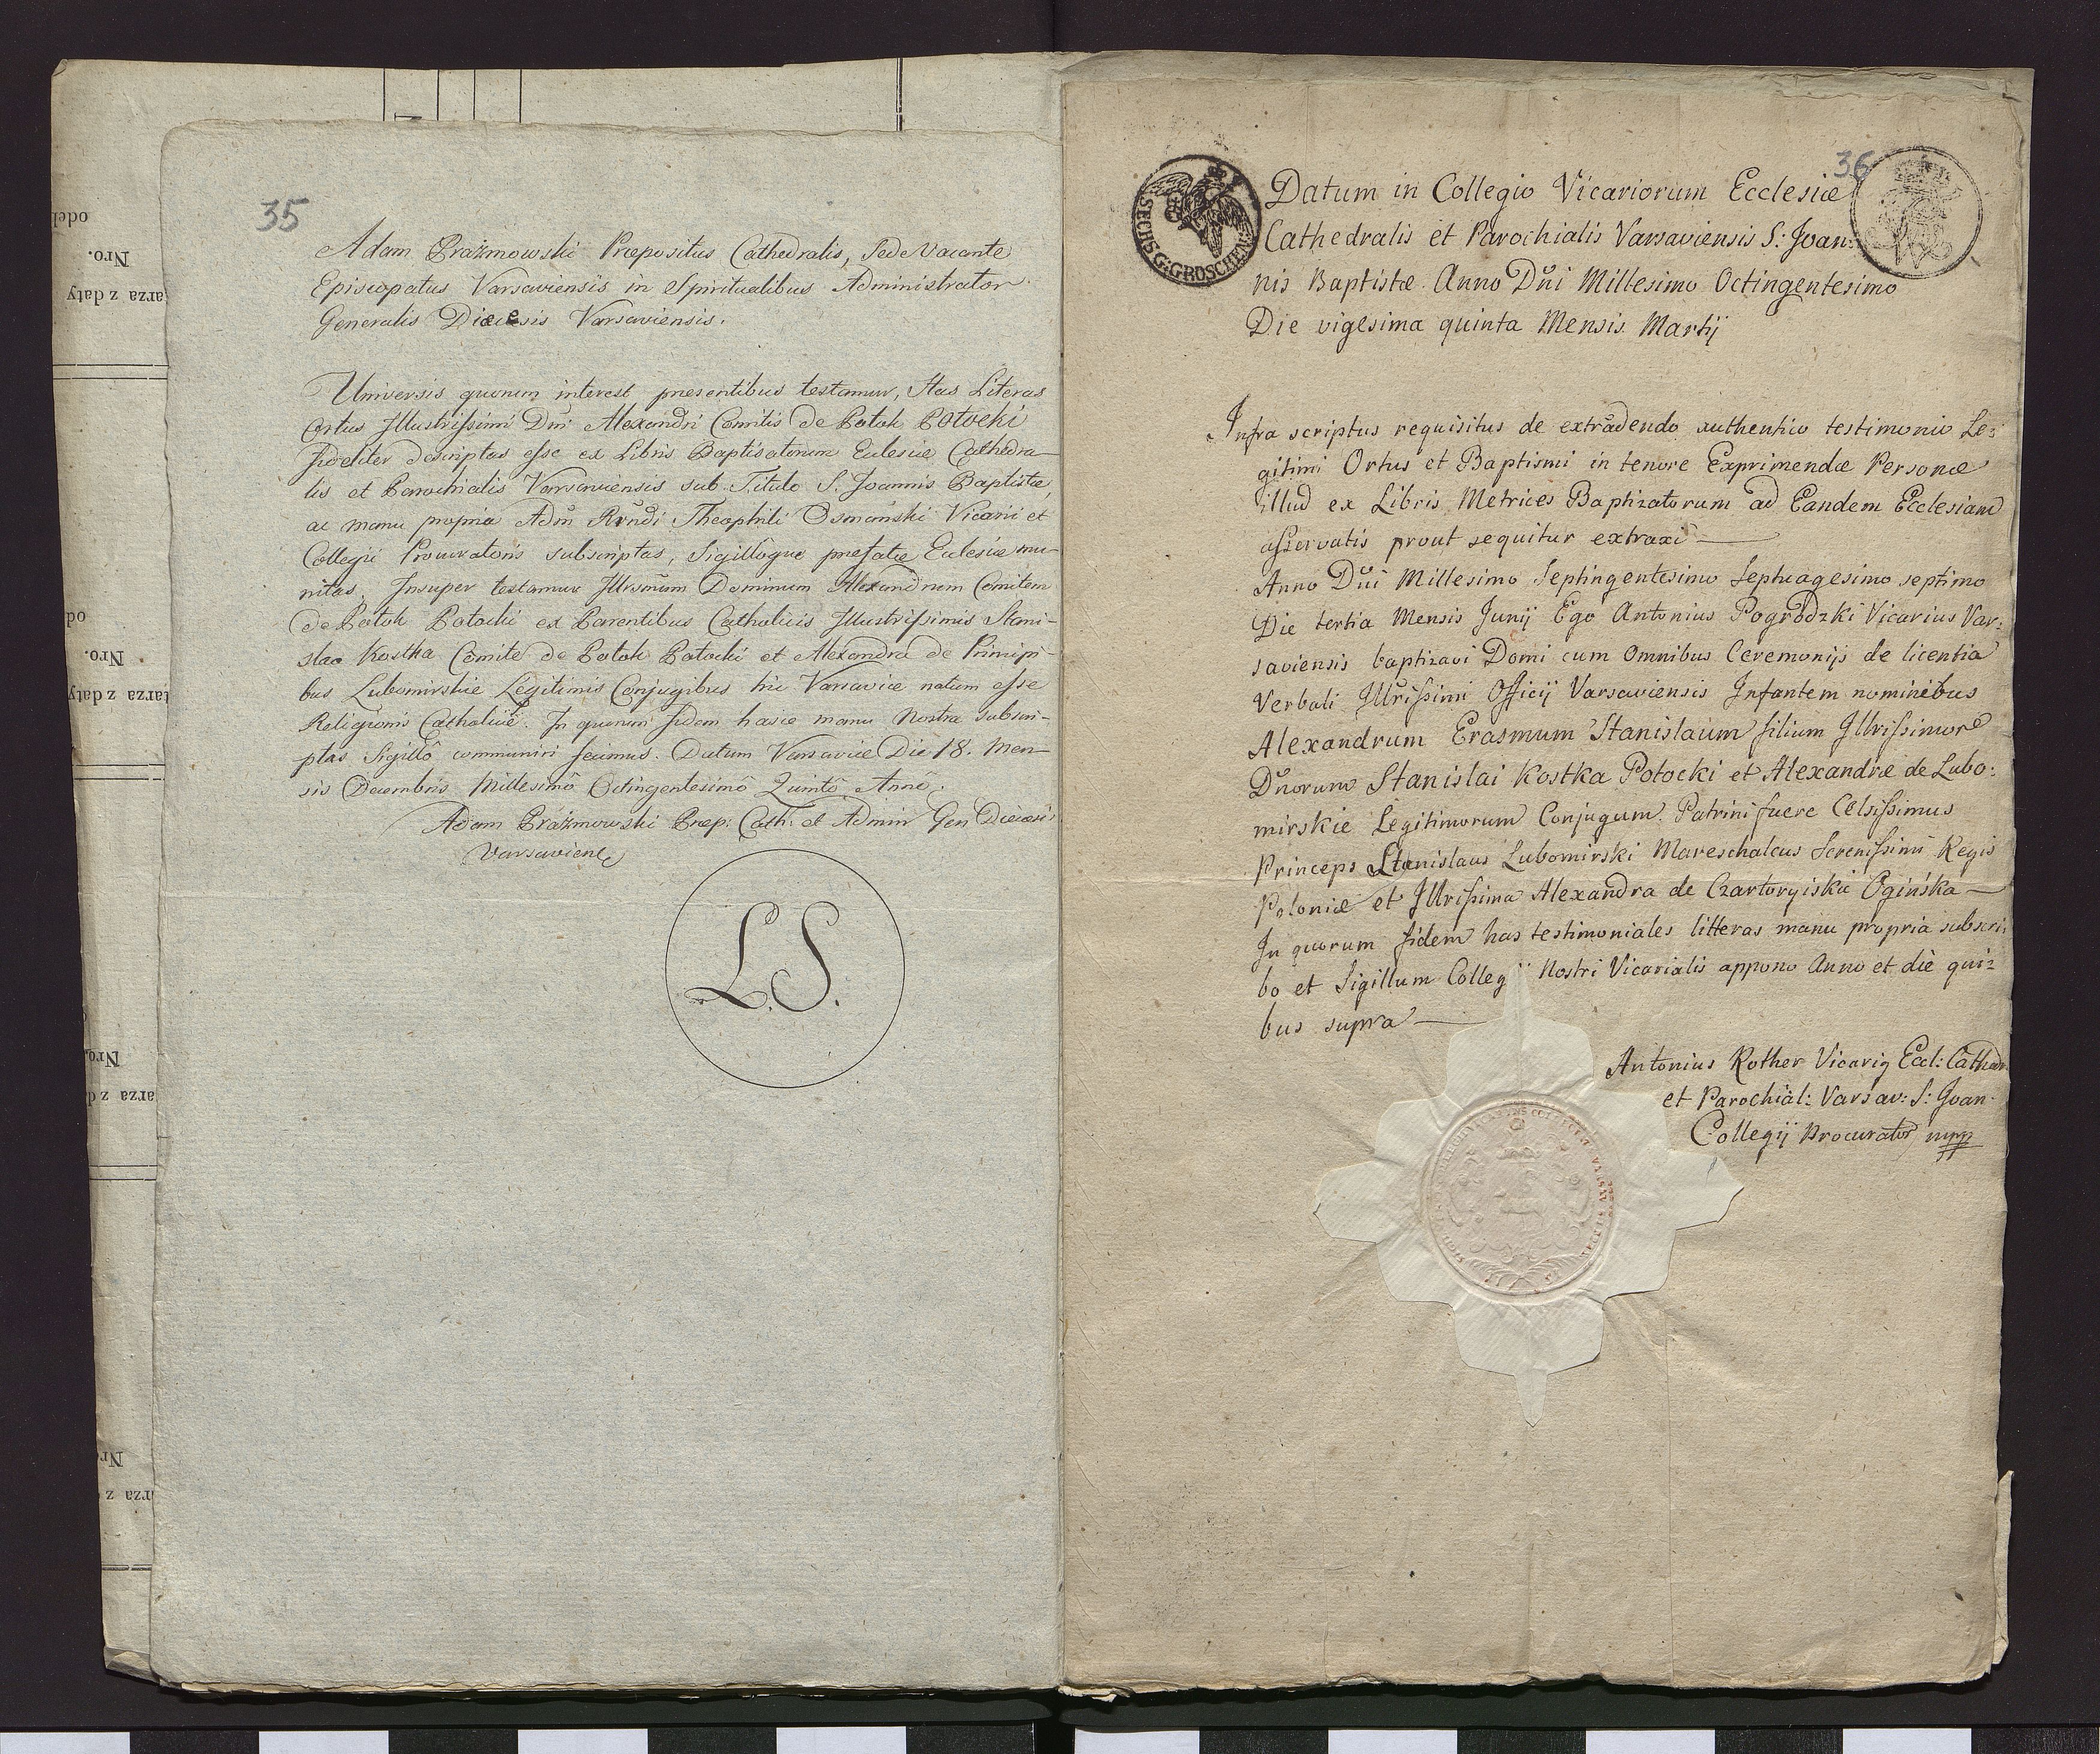 35
Adam Prażmowski Præpositus Cathedralis, Sede Vacante
Episcopatus Varsaviensis in Spiritualibus Administrator
Generalis Diæcesis Varsaviensis.
Universis quorum interest, presentibus testamur, Has Literas
Ortus Illustrissimi Dni Alexandri Comitis de Potok Potocki
fideliter descriptas esse ex Libris Baptisatorum Eclesiæ Cathedra-
lis et Parochialis Varsaviensis sub Titulo S. Joannis Baptistæ,
ac manu propria Adm Rvndi Theophili Osmański Vicarii et
Collegii Procuratoris subscriptas, Sigillôque prefatæ Eclesiæ mu-
nitas. Insuper testamur Illrsmum Dominum Alexandrum Comitem
de Potok Potocki ex Parentibus Catholicis Illustrissimis Stani-
slao Kostka Comite de Potok Potocki et Alexandra de Principi-
bus Lubomirskie Legitimis Conjugibus hic Varsaviæ natum esse
Religionis Catholicæ. In quorum fidem hasce manu Nostra subscri-
ptas Sigillô communiri fecimus. Datum Varsaviæ Die 18. Men-
sis Decembris Millesimô Octingentesimô Quintô Annô.
Adam Prażmowski Præp: Cath: et Admin Gen Diæcesis
Varsaviens
L.S.
36
SECHS G: GROSCHEN
Datum in Collegio Vicariorum Ecclesiæ
Cathedralis et Parochialis Varsaviensis S: Joan:
nis Baptistæ Anno Dni Millesimo Octingentesimo
Die vigesima quinta Mensis Martij
Infra scriptus requisitus de extradendo authentico testimonio Le:
gitimi Ortus et Baptismi in tenore Exprimendæ Personæ
illud ex Libris Metrices Baptizatorum ad Eandem Ecclesiam
asservatis prout sequitur extraxi
Anno Dni Millesimo Septingentesimo Septuagesimo septimo
Die tertia Mensis Junij Ego Antonius Pogrodzki Vicarius Var:
saviensis baptizavi Domi cum Omnibus Ceremonijs de licentia
Verbali Illrissimi Officij Varsaviensis Infantem nominibus
Alexandrum Erasmum Stanislaum filium Illrissimor
Dnorum Stanislai Kostka Potocki et Alexandræ de Lubo:
mirskie Legitimorum Conjugum. Patrini fuere Celsissimus
Princeps Stanislaus Lubomirski Mareschalcus Serenissimi Regis
Poloniæ et Illrissima Alexandra de Czartoryiskie Ogińska
In quorum fidem has testimoniales litteras manu propria subscri:
bo et Sigillum Collegij Nostri Vicarialis appono Anno et die qui:
bus supra
Antonius Rother Vicarig Eccl: Cathedr
et Parochial: Varsav: S: Joan.
Collegij Procurator mpp